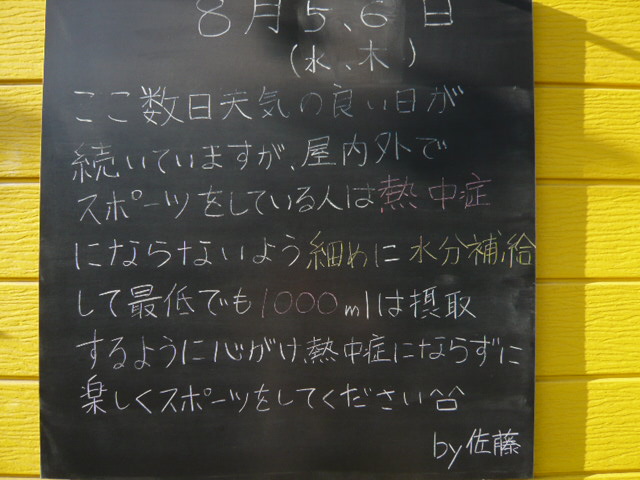 8月5、6日
(水、木)
ここ数日天気の良い日が
続いていますが、屋内外で
スポーツをしている人は熱中症
にならないよう細めに水分補給
して最低でも1000mlは摂取
するように心がけ、熱中症にならずに
楽しくスポーツをしてください^口^
by佐藤